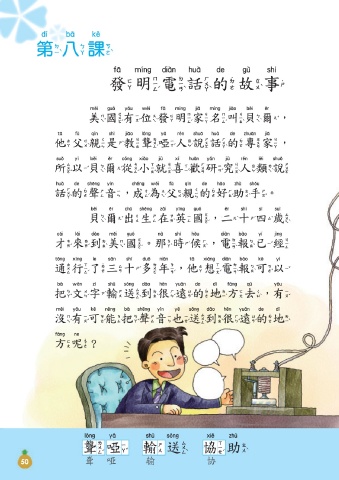 dì bā kè
第八課
fā míng diàn huà de gù shi
發明電話的故事
měi guó yǒu wèi fā míng jiā míng jiào bèi ěr
美國有位發明家名叫貝爾，
tā fù qīn shì jiāo lóng yǎ rén shuō huà de zhuān jiā
他父親是教聾啞人說話的專家，
suǒ yǐ bèi ěr cóng xiǎo jiù xǐ huān yán jiù rén lèi shuō
所以貝爾從小就喜歡研究人類說
huà de shēng yīn chéng wéi fù qīn de hǎo zhù shǒu
話的聲音，成為父親的好助手。
bèi ěr chū shēng zài yīng guó èr shí sì suì
貝爾出生在英國，二十四歲
cái lái dào měi guó nà shí hòu diàn bào yǐ jīng
才來到美國。那時候，電報已經
tōng xíng le sān shí duō nián tā xiǎng diàn bào kě yǐ
通行了三十多年，他想電報可以
bǎ wén zì shū sòng dào hěn yuǎn de dì fāng qù yǒu
把文字輸送到很遠的地方去，有
méi yǒu kě néng bǎ shēng yīn yě sòng dào hěn yuǎn de dì
沒有可能把聲音也送到很遠的地
fāng ne
方呢？
lóng yǎ shū sòng xié zhù
聾啞 輸送 協助
聾 啞 輸 協
50